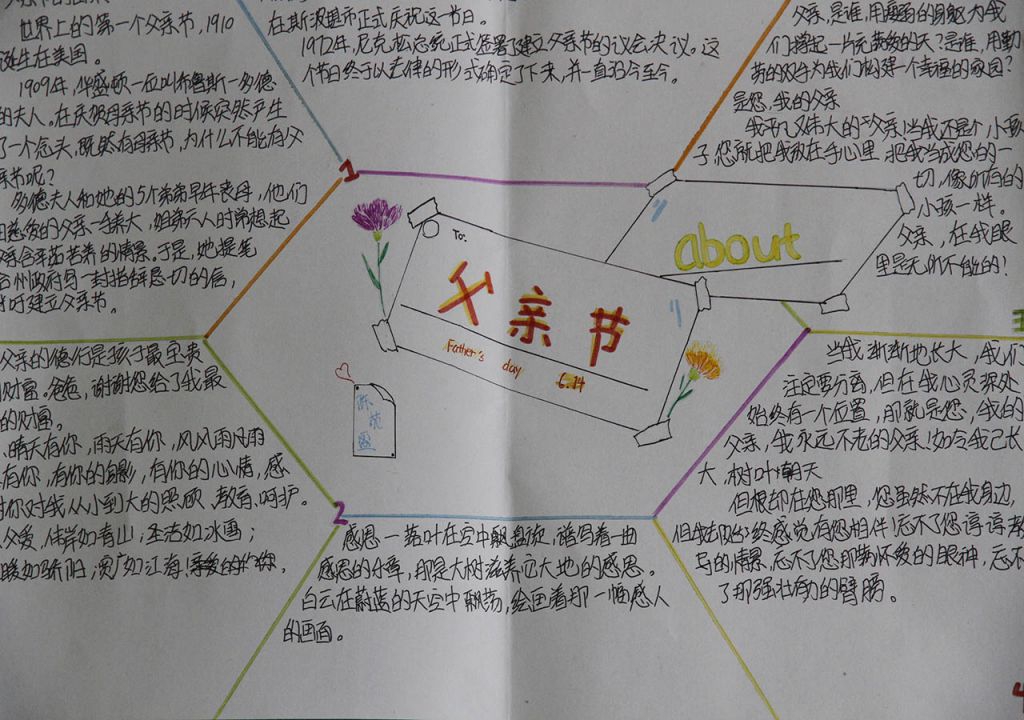 世界上的第一个父亲节，1910
诞生在美国。
1909年，华盛顿一位叫布鲁斯-多德
的夫人，在庆祝母亲节的时候突然产生
了一个念头，既然有母亲节，为什么不能有父
亲节呢？
多德夫人和她的5个弟弟早年丧母，他们
的父亲一手养大，姐弟六人时常想起
父亲含辛茹苦养的情景。于是，她提笔
州政府写一封措辞恳切的信，
建立父亲节。
在斯波坎市正式庆祝这一节日。
1972年，尼克松总统正式签署了建立父亲节的议会决议。这
个节日终于以法律的形式确定了下来，并一直沿今至今。
父亲，是谁，用
们撑起一片充满爱的天？是谁，用勤
劳的双手为我们构建一个幸福的家园？
是您，我的父亲
我平凡又伟大的父亲，当我还是个小孩
子，您就把我放在手心里，把我当成您的一
切，像所有的
小孩一样。
父亲，在我眼
里是无所不能的！
1
To.
about
父亲节
Father's day 6.14
父亲的德行是孩子最宝贵
财富。爸爸，谢谢您给了我最
的财富。
晴天有你，雨天有你，风风雨雨
有你，有你的身影，有你的心情，感
谢你对我从小到大的照顾，教育，呵护。
父爱，伟岸如青山；圣洁如冰雪；
暖如骄阳；宽广如江海；亲爱的爸爸，
2
感恩一 落叶在空中盘旋，谱写着一曲
感恩的乐章，那是大树滋养它大地的感恩。
白云在蔚蓝的天空中飘荡，绘画着那一幅感人
的画面。
3
当我渐渐地长大，我们
注定要分离，但在我心灵深处
始终有一个位置，那就是您，我的
父亲，我永远不老的父亲！如今我已长
大，树叶朝天
但根却在您那里，您虽然不在我身边，
但我却始终感觉有您相伴！忘不了您谆谆教
的情景，忘不了您那满怀爱的眼神，忘不
了那强壮有力的臂膀。
4